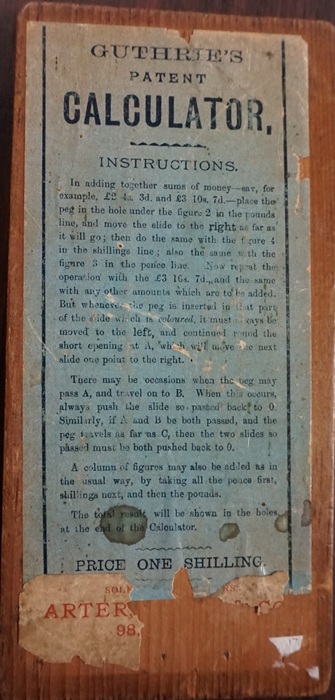 GUTHRIE'S
PATENT
CALCULATOR,
INSTRUCTIONS.
In adding together sums of money—say, for
example, £2 4s. 3d. and £3 10s. 7d.—place the
peg in the hole under the figure 2 in the pounds
line, and move the slide to the right as far as
it will go; then do the same with the figure 4
in the shillings line; also the same with the
figure 3 in the pence line. Now repeat the
operation with the £3 10s. 7d., and the same
with any other amounts which are to be added.
But whenever the peg is inserted in that part
of the slide which is coloured, it must always be
moved to the left, and continued round the
short opening at A, which will move the next
slide one point to the right.
There may be occasions when the peg may
pass A, and travel on to B. When this occurs,
always push the slide so passed back to 0.
Similarly, if A and B be both passed, and the
peg travels as far as C, then the two slides so
passed must be both pushed back to 0.
A column of figures may also be added as in
the usual way, by taking all the pence first,
shillings next, and then the pounds.
The total result will be shown in the holes
at the end of the Calculator.
PRICE ONE SHILLING.
ARTER
98,